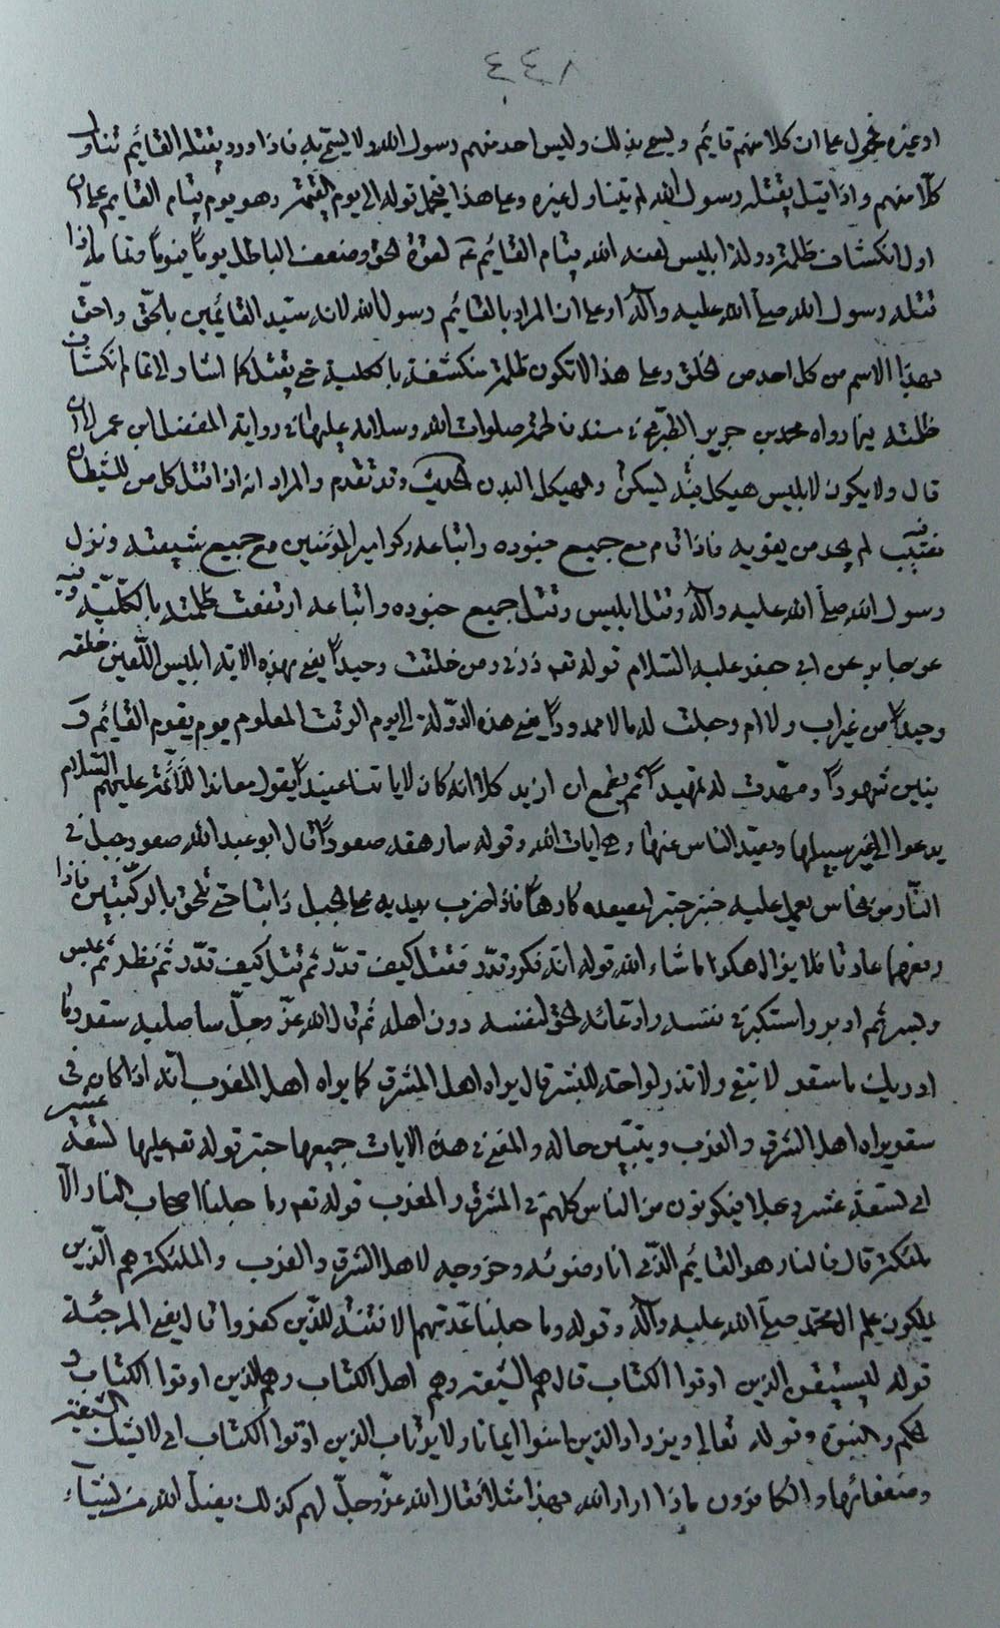 ٤٤٨
او غيره فمحمول على ان كلا منهم قايم ويسمى بذلك وليس احد منهم رسول الله ولا يسمى به فاذا ورد يقتله القايم تناول
كلّا منهم واذا قيل يقتله رسول الله لم يتناول غيره وعلى هذا يحمل قوله الى يوم القيمة وهو يوم قيام القايم على ان
اول انكشاف ظلمة دولة ابليس لعنه الله بقيام القائم عَ لقوة الحق وضعف الباطل يوماً فيوماً وتمامه اذا
قتله رسول الله صلى الله عليه وآله او على ان المراد بالقايم رسول الله لانه سيد القائمين بالحّق واحقّ
بهذا الاسم من كل احد من الخلق وعلى هذا لا تكون ظلمة منكشفة بالكلية حتى يقتل كما اشار الى تمام انكشاف
ظلمته فيما رواه محمد بن جرير الطبري في مسند فاطمة صلوات الله وسلامه عليها في رواية المفضل ابن عمر الى ان
قال ولا يكون لابليس هيكل يثبه ليسكن والهيكل البدن الحديث وقد تقدم والمراد انه اذا قتل كل من للشيطان
فيه نصيب لم يجد من يقويه فاذا قام مع جميع جنوده واتباعه وكرّ امير المؤمنين مع جميع شيعته ونزل
رسول الله صلى الله عليه وآله وقتل ابليس وقتل جميع جنوده واتباعه ارتفعت ظلمته بالكليّة وفيه
عن جابر عن ابي جعفر عليه السلام قوله تعه ذرني ومن خلقت وحيداً يعني بهذه الاية ابليس اللّعين خلقه
وحيداً من غير اب ولا ام وجعلت له مالا ممدوداً يعني هذه الدولة الى يوم الوقت المعلوم يوم يقوم القائم و
بنين شهوداً ومهّدت له تمهيداً ثم يطمع ان ازيد كلا انه كان لاياتنا عنيداً يقول معاندا للأئمة عليهم السلام
يدعوا الى غير سبيلها ويصد الناس عنها وهي ايات الله وقوله سارهقه صعوداً قال ابو عبد الله صعود جبل في
النّار من نحاس يحمل عليه حبتر ليصعده كارهاً فاذا ضرب بيديه على الجبل ذابتا حتى تلحق بالركبتين فاذا
رفعهما عادتا فلا يزال هكذا ما شاء الله قوله انه فكر وقدّر فقتل كيف قدّر ثم قتل كيف قدّر ثم نظر ثم عبس
وبسر ثم ادبر واستكبر في نفسه وادّعائه الحق لنفسه دون اهله ثم قال الله عزّ وجلّ ساصليه سقر وما
ادريك ما سقر لا تبقي ولا تذر لواحة للبشر قال يراه اهل المشرق كما يراه اهل المغرب انّه اذا كان في
سقر يراه اهل الشرق والغرب ويتبيّن حاله والمعني في هذه الايات جميعها حبتر قوله تعه عليها تسعة عشر
اي تسعة عشر رجلا فيكونون من الناس كلهم في المشرق والمغرب قوله تعه وما جعلنا اصحاب النار الّا
ملئكة قال فالنار هو القايم الذي انار ضوئه وخروجه لاهل الشرق والغرب والملئكة هم الّذين
يملكون علم ال محمّد صلى الله عليه وآله وقوله وما جعلنا عدّتهم الا فتنة للذّين كفروا قال يعني المرجئة
قوله ليستيقن الذين اوتوا الكتاب قال هم الشيعة وهم اهل الكتاب وهم الذين اوتوا الكتاب و
الحكم والنبوة وقوله تعالى ويزداد الذين امنوا ايمانا ولا يرتاب الذين اوتوا الكتاب اي لا يشك الشيعة
وضعفائها والكافرون ماذا اراد الله بهذا مثلا فقال الله عزّ وجلّ لهم كذلك يضل الله من يشاء